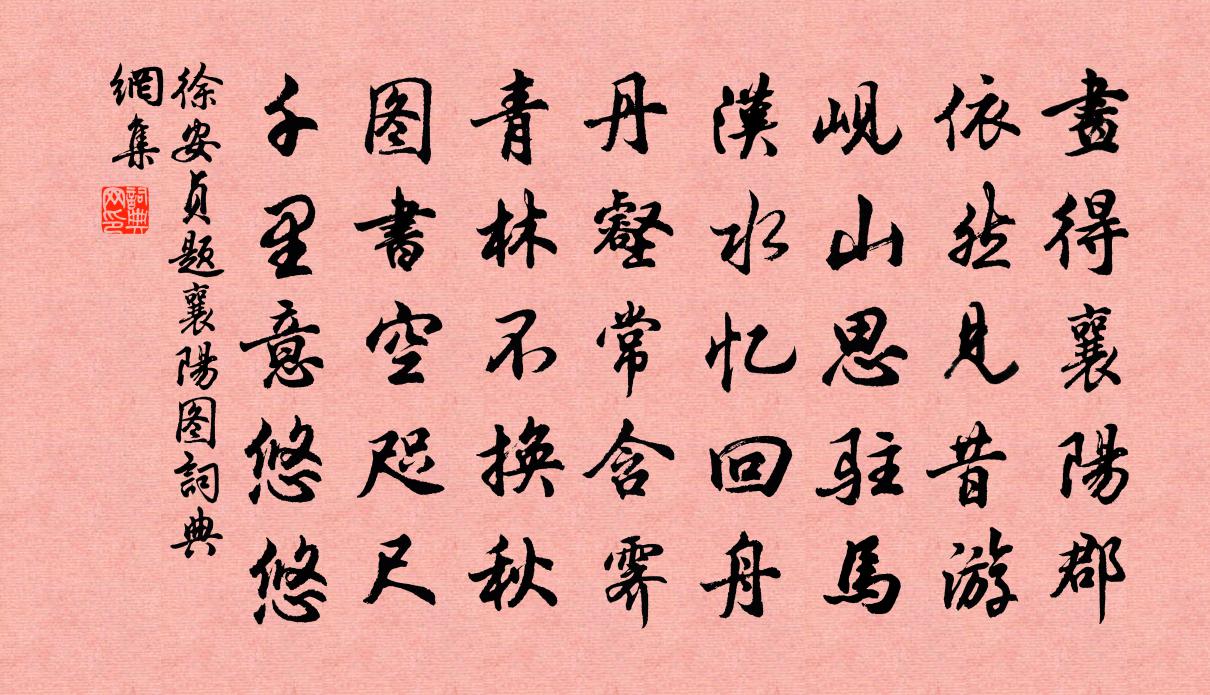 畫得襄陽郡
依然見昔游
峴山思駐馬
漢水忆回舟
丹壑常含霁
青林不換秋
图書空咫尺
千里意悠悠
徐安貞题襄陽图詞典
網集
詞典网印